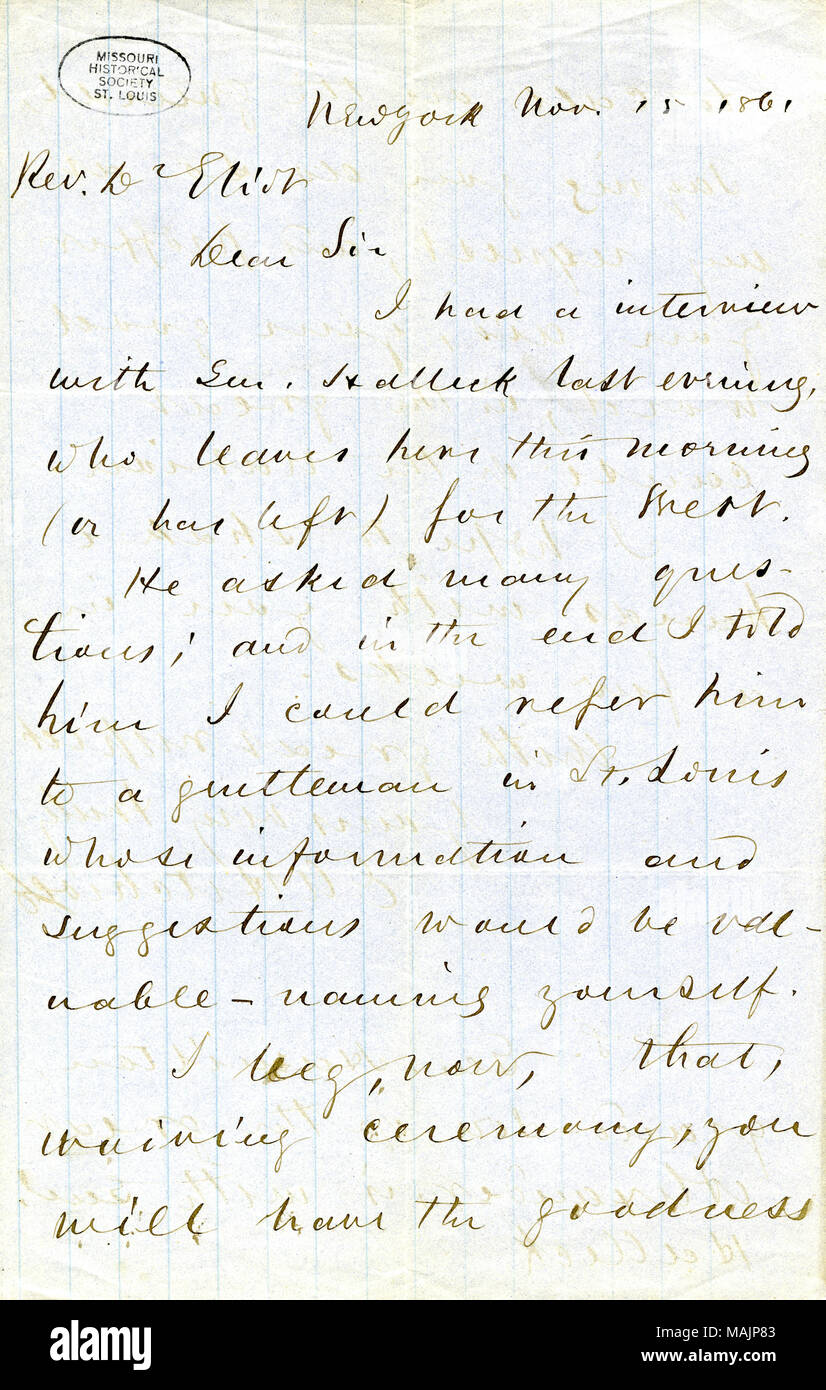 MISSOURI
HISTORICAL
SOCIETY
ST. LOUIS
New York Nov. 15 1861
Rev. Dr Eliot
Dear Sir
I had a interview
with Gen. Halleck last evening,
who leaves here this morning
(or has left) for the West.
He asked many ques-
tions; and in the end I told
him I could refer him
to a gentleman in St. Louis
whose information and
suggestions would be val-
uable - naming yourself.
I beg, now, that,
waiving ceremony, you
will have the goodness
alamy
Image ID: MAJP83
www.alamy.com